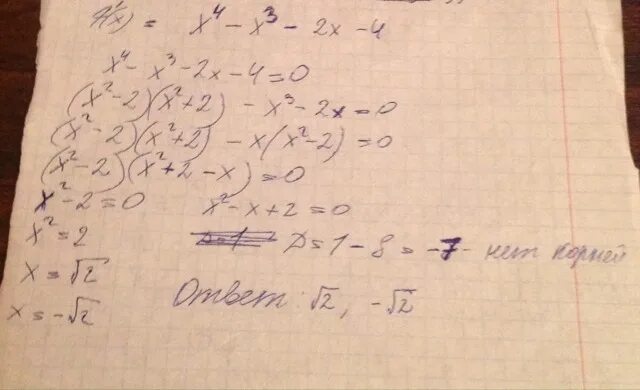 f(x) = x⁴ - x³ - 2x - 4
x⁴ - x³ - 2x - 4 = 0
(x² - 2)(x² + 2) - x³ - 2x = 0
(x² - 2)(x² + 2) - x(x² - 2) = 0
(x² - 2)(x² + 2 - x) = 0
x² - 2 = 0 x² - x + 2 = 0
x² = 2 D = 1 - 8 = -7 - нет корней
x = √2
x = -√2
Ответ: √2, -√2